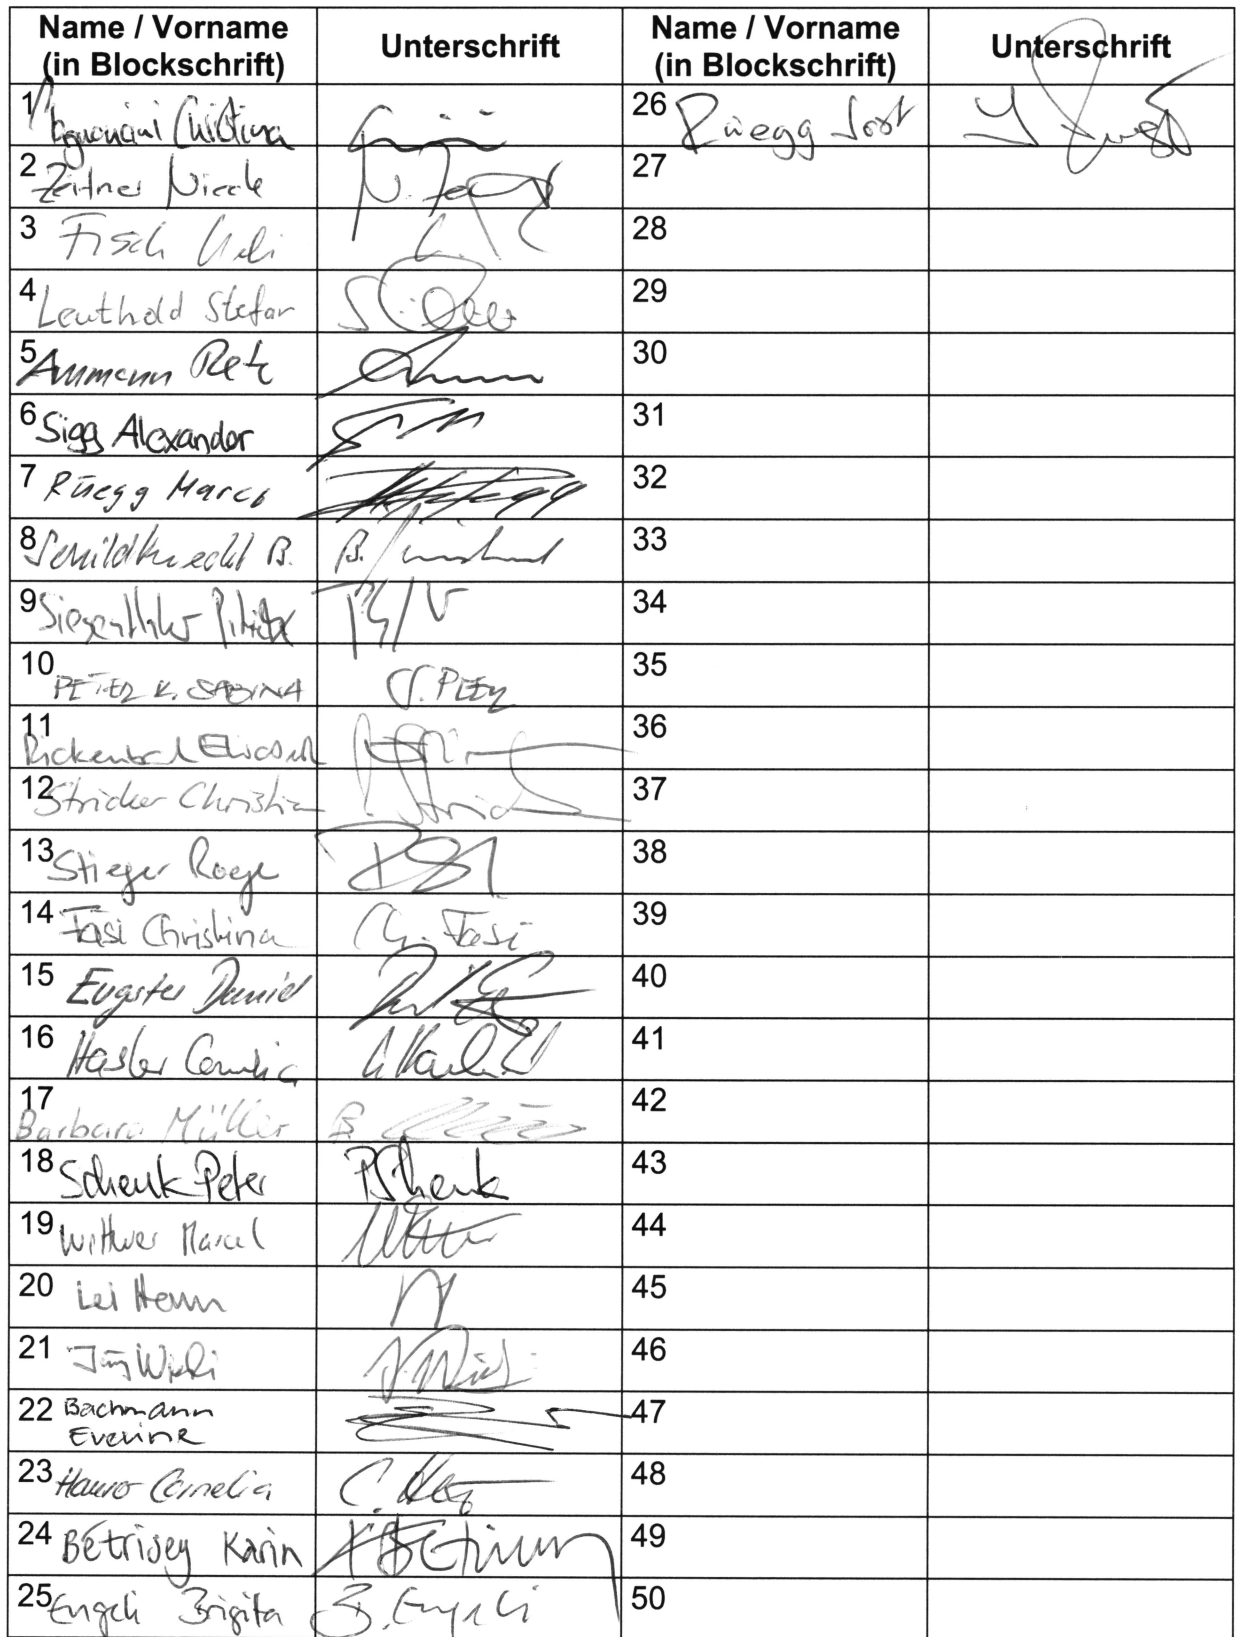 Name / Vorname (in Blockschrift) Unterschrift Name / Vorname (in Blockschrift) Unterschrift
1 Pagnoncini Christina
26 Rüegg Jost
2 Zeitner Nicole N. Zeitner
27
3 Fisch Ueli
28
4 Leuthold Stefan
29
5 Ammann Reto
30
6 Sigg Alexander
31
7 Rüegg Marco
32
8 Schildknecht B. B.
33
9 Siegenthaler
34
10 PETER K. SABINA S. PETER
35
11 Rickenbach Elisabeth
36
12 Stricker Christian
37
13 Stieger Roger
38
14 Fäsi Christina Ch. Fäsi
39
15 Eugster Daniel
40
16 Hasler Cornelia
41
17 Barbara Müller B. Müller
42
18 Schenk Peter P Schenk
43
19 Wittwer Marcel
44
20 Lei Hermann
45
21 Jürg Wiesli J. Wiesli
46
22 Bachmann
Eveline
47
23 Hauser Cornelia C.
48
24 Bétrisey Karin K Bétrisey
49
25 Engeli Brigitta B. Engeli
50